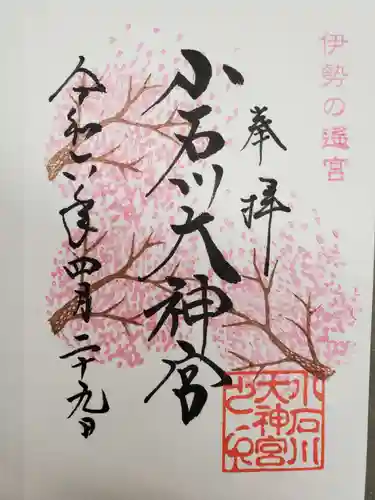 伊勢の遥宮
奉拝
小石川大神宮
令和六年四月二十九日
小石川
大神宮